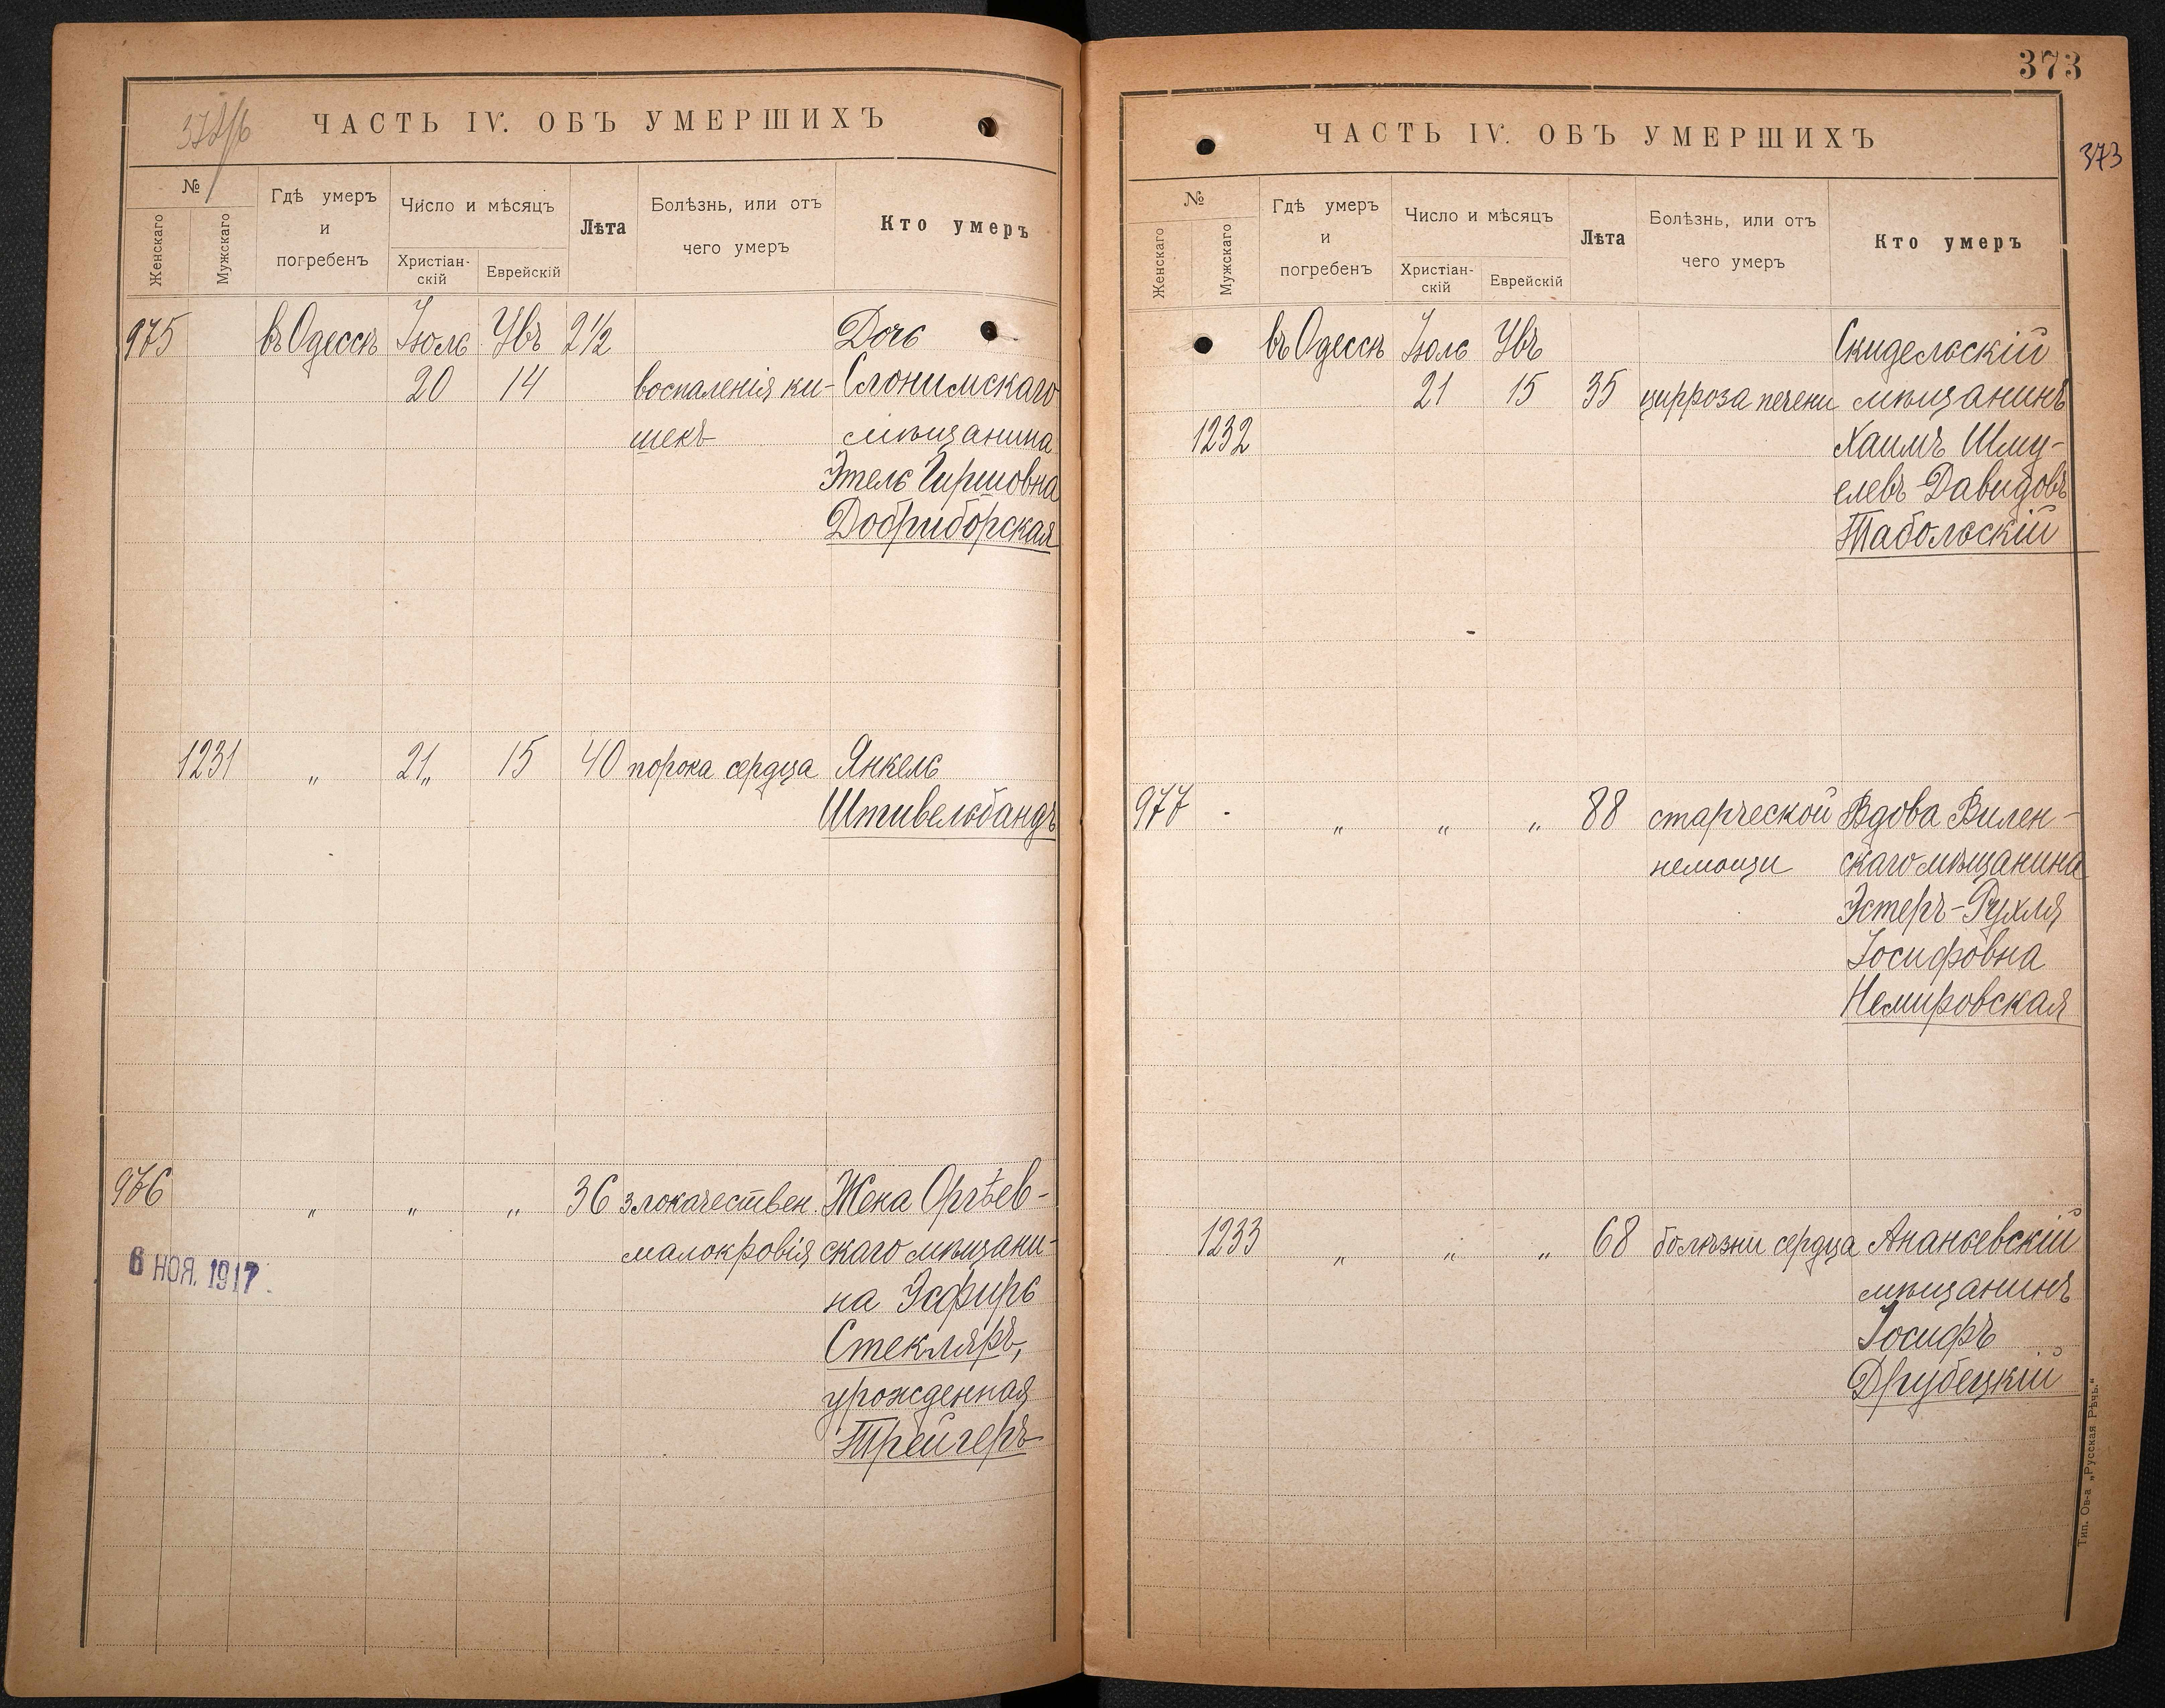 ЧАСТЬ IV. ОБЪ УМЕРШИХЪ
№
Женскаго
Мужскаго
Гдѣ умеръ
и
погребенъ
Число и мѣсяцъ
Христіан-
скій
Еврейскій
Лѣта
Болѣзнь, или отъ
чего умеръ
Кто умеръ
975 въ Одессѣ Іюль Увъ 2½ Дочь
20 14 воспаленія ки- Слонимскаго
шекъ мѣщанина
Этель Гиршовна
Добриборская
1231 " 21 " 15 40 порока сердца Янкель
Штивельбандъ
976 " " " 36 злокачествен. Жена Оргѣев-
малокровія скаго мѣщани-
6 НОЯ. 1917
на Эсфирь
Стекляръ,
урожденная
Трейгеръ
373
373
ЧАСТЬ IV. ОБЪ УМЕРШИХЪ
№
Женскаго
Мужскаго
Гдѣ умеръ
и
погребенъ
Число и мѣсяцъ
Христіан-
скій
Еврейскій
Лѣта
Болѣзнь, или отъ
чего умеръ
Кто умеръ
въ Одессѣ Іюль Увъ Скидельскій
21 15 35 цирроза печени мѣщанинъ
1232 Хаимъ Шму-
елевъ Давидовъ
Табольскій
977 " " " 88 старческой Вдова Вилен-
немощи скаго мѣщанина
Эстеръ-Рухля
Іосифовна
Немировская
1233 " " " 68 болѣзни сердца Ананьевскій
мѣщанинъ
Іосифъ
Друбецкій
Тип. Ов-а „Русская Рѣчь."